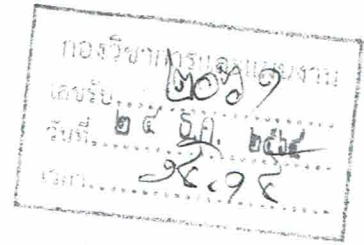 กองวิชาการและแผนงาน
เลขรับ ๒๐๖๑
วันที่ ๒ ๔ ธ.ค. ๒๕๖๔
เวลา ๑๔.๑๔